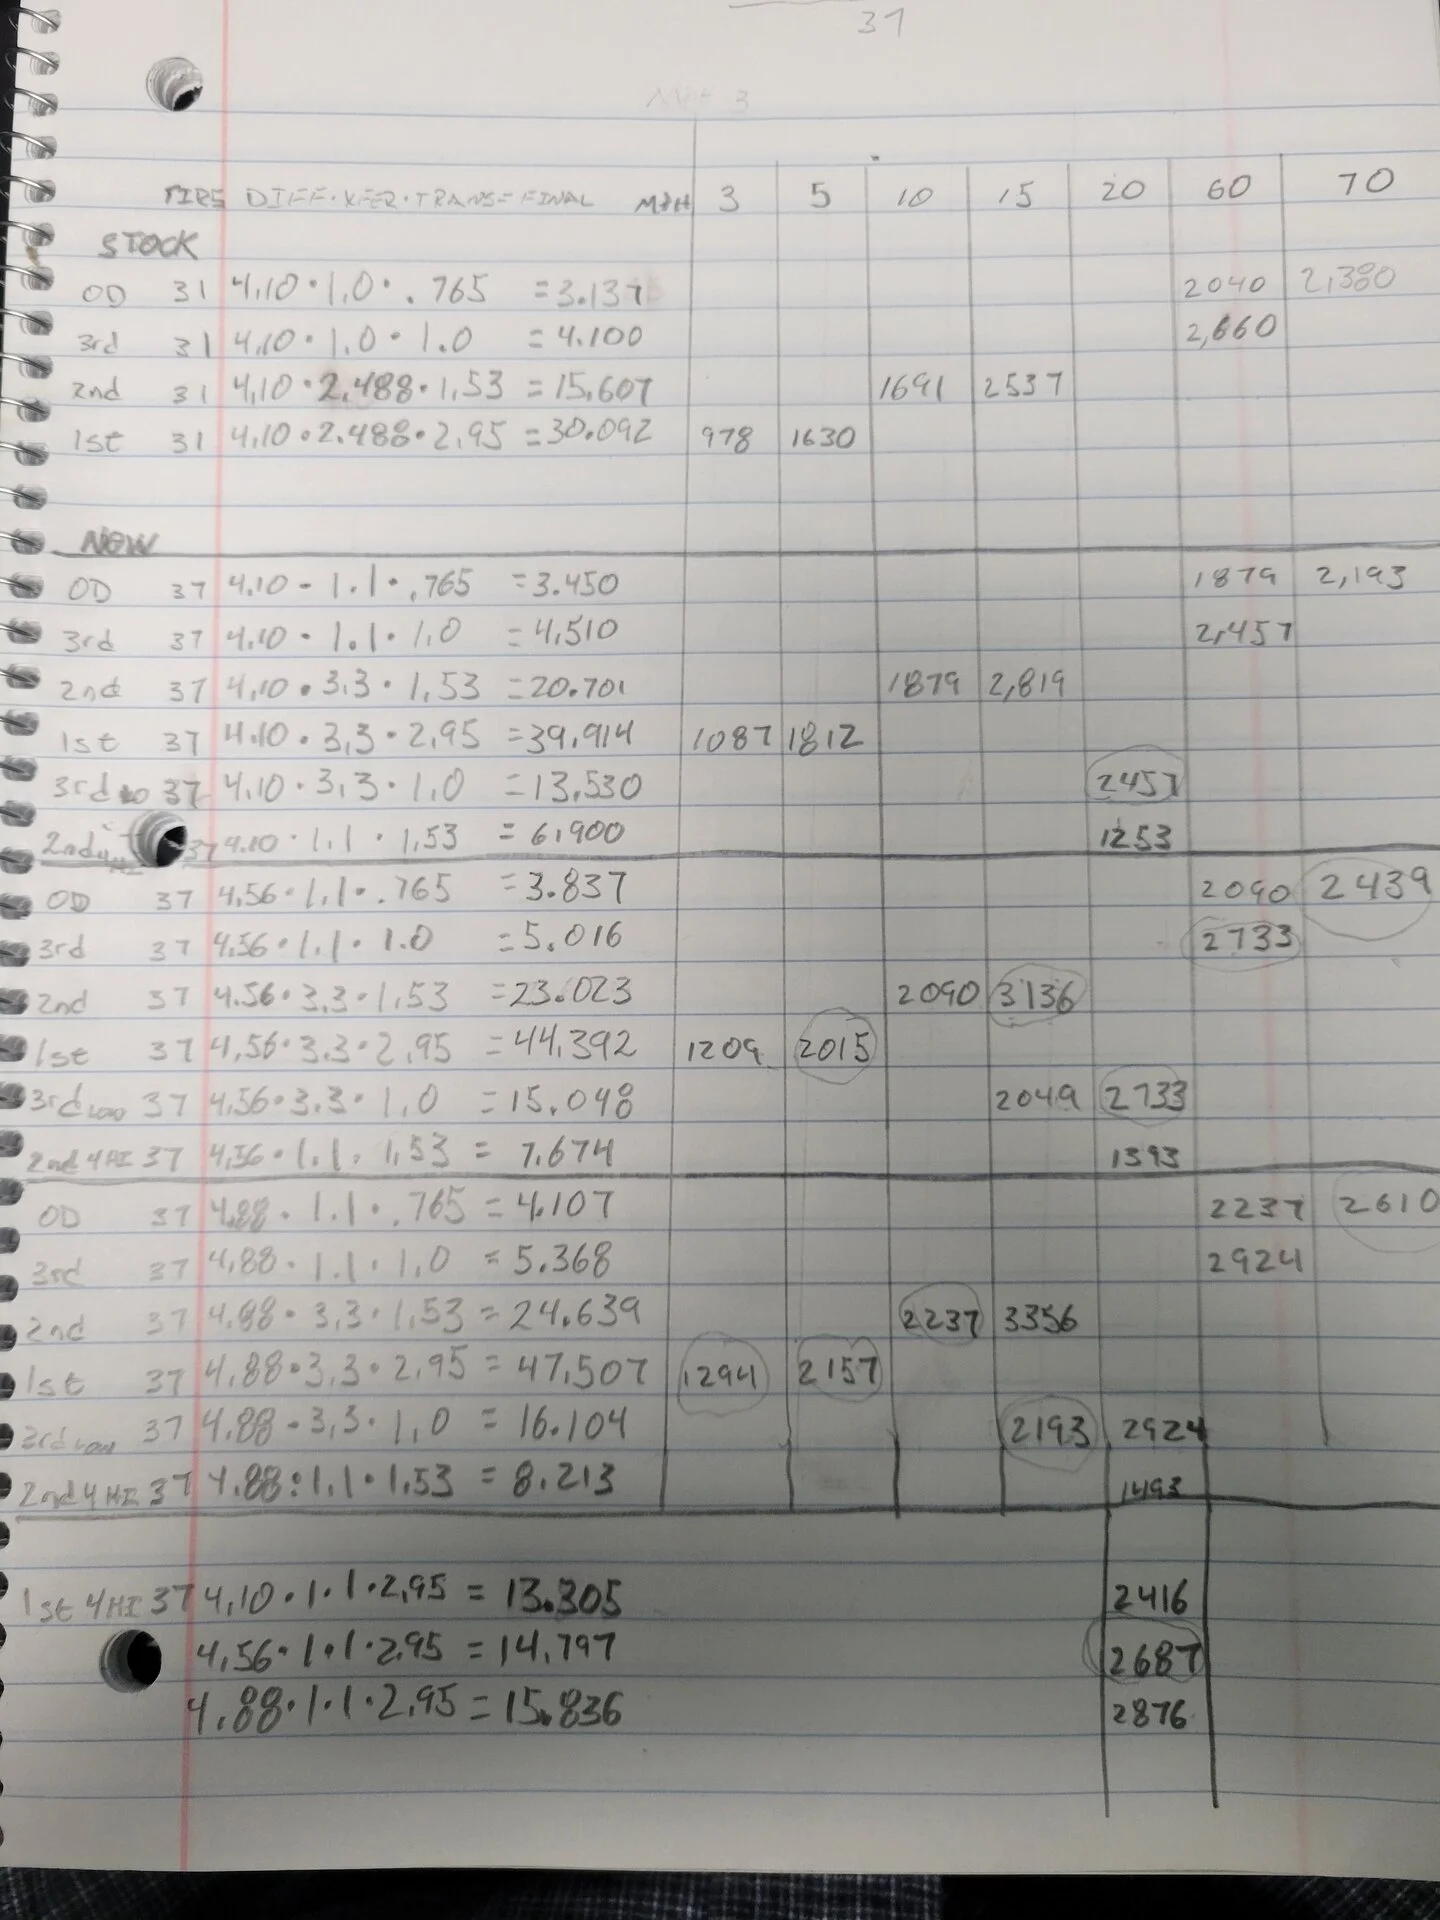 37
MPH 3
TIRE DIFF·XFER·TRANS=FINAL MPH 3 5 10 15 20 60 70
STOCK
OD 31 4.10·1.0·.765 =3.137 2040 2,380
3rd 31 4.10·1.0·1.0 =4.100 2,660
2nd 31 4.10·2.488·1.53 =15.607 1691 2537
1st 31 4.10·2.488·2.95 =30.092 978 1630
NEW
OD 37 4.10·1.1·.765 =3.450 1879 2,193
3rd 37 4.10·1.1·1.0 =4.510 2,457
2nd 37 4.10·3.3·1.53 =20.701 1879 2,819
1st 37 4.10·3.3·2.95 =39.914 1087 1812
3rd LO 37 4.10·3.3·1.0 =13.530 2457
2nd 4HI 37 4.10·1.1·1.53 =6.900 1253
OD 37 4.56·1.1·.765 =3.837 2090 2439
3rd 37 4.56·1.1·1.0 =5.016 2733
2nd 37 4.56·3.3·1.53 =23.023 2090 3136
1st 37 4.56·3.3·2.95 =44.392 1209 2015
3rd LOW 37 4.56·3.3·1.0 =15.048 2049 2733
2nd 4HI 37 4.56·1.1·1.53 = 7.674 1393
OD 37 4.88·1.1·.765 =4.107 2237 2610
3rd 37 4.88·1.1·1.0 =5.368 2924
2nd 37 4.88·3.3·1.53 =24.639 2237 3356
1st 37 4.88·3.3·2.95 =47.507 1294 2157
3rd LOW 37 4.88·3.3·1.0 =16.104 2193 2924
2nd 4HI 37 4.88·1.1·1.53 =8.213 1493
1st 4HI 37 4.10·1.1·2.95 =13.305 2416
4.56·1.1·2.95 =14.797 2687
4.88·1.1·2.95 =15.836 2876